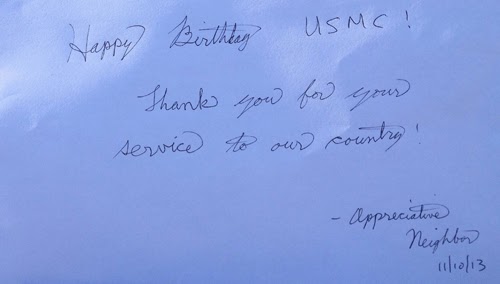 Happy Birthday USMC!
Thank you for your
service to our country!
- Appreciative
Neighbor
11/10/13